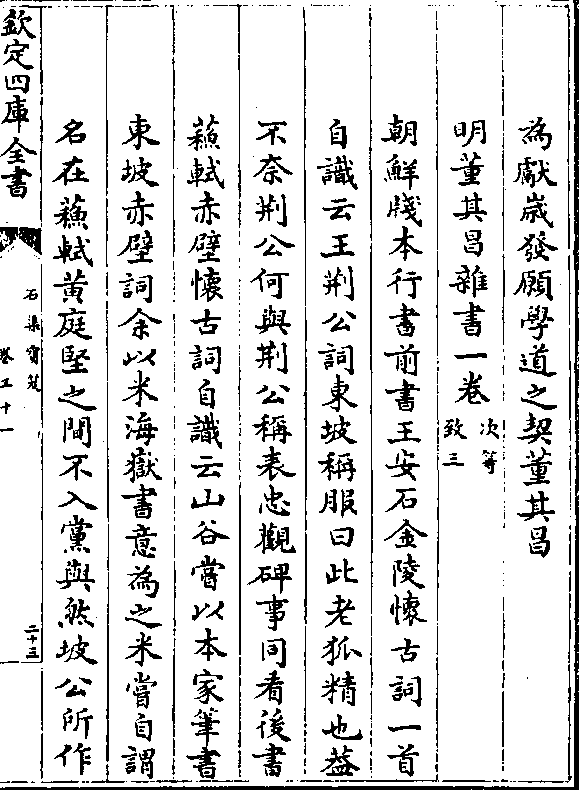 為獻嵗發願學道之契董其昌
明董其昌雜書一卷次等致三
朝鮮牋本行書前書王安石金陵懷古詞一首
自識云王荆公詞東坡稱服曰此老狐精也葢
不奈荆公何與荆公稱表忠觀碑事同看後書
蘇軾赤壁懷古詞自識云山谷嘗以本家筆書
東坡赤壁詞余以米海嶽書意為之米嘗自謂
名在蘇軾黄庭堅之間不入黨與然坡公所作
欽定四庫全書
石渠寳笈
卷三十一
二十三